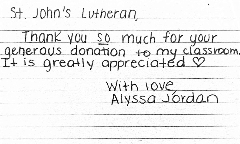 St. John's Lutheran,
Thank you so much for your
generous donation to my classroom.
It is greatly appreciated ♡
With love
Alyssa Jordan